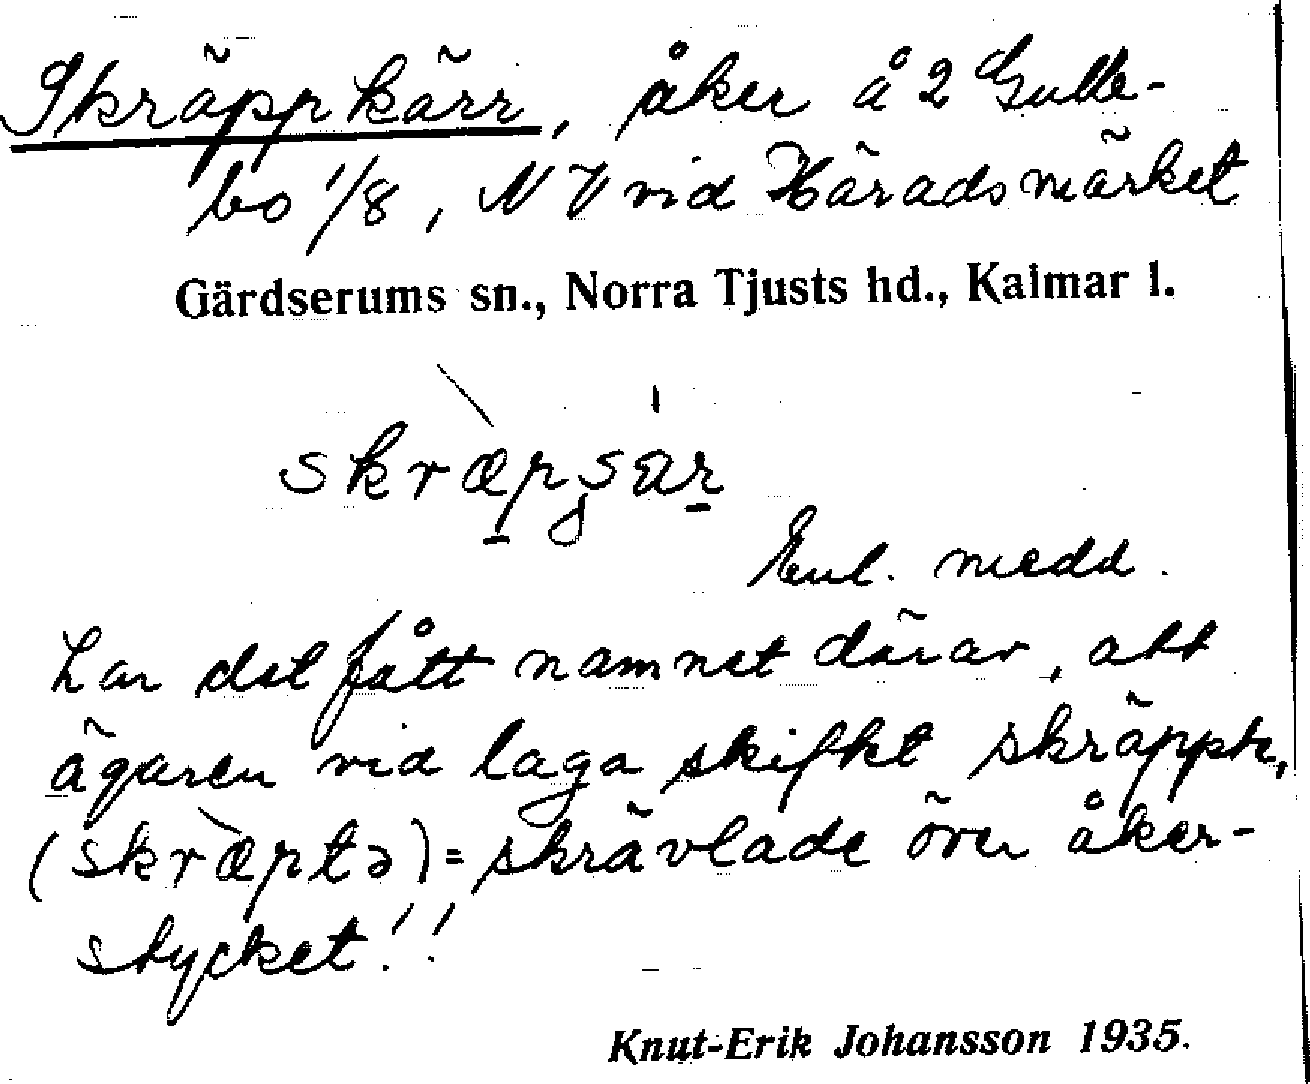 Skräppkärr, åker å 2 Gulle-
bo 1/8, NV vid Häradsmärket
Gärdserums sn., Norra Tjusts hd., Kalmar l.
Enl. medd.
har det fått namnet därav, att
ägaren vid laga skiftet skräppte,
(skræptə) = skrävlade över åker-
stycket!!
Knut-Erik Johansson 1935.